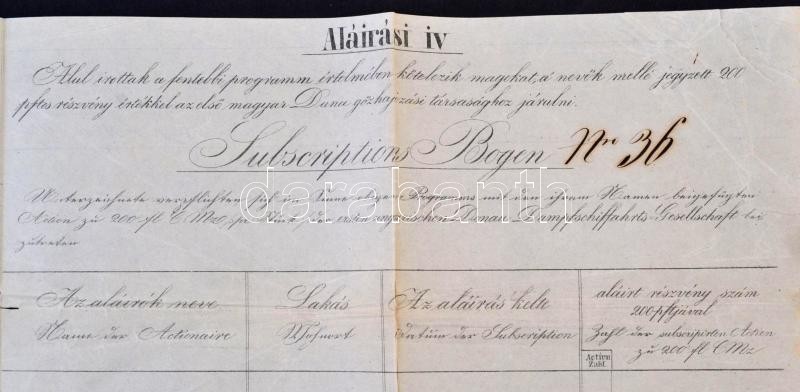 Aláirási iv
Alul irottak a fentebbi programm értelmében kötelezik magokat, a nevök mellé jegyzett 200
pftos részvény értékkel az első magyar Duna gőzhajozási társasághoz járulni.
Subscriptions Bogen Nro 36
Unterzeichnete verpflichten sich im Sinne obigen Programms mit den ihrem Namen beigefügten
Action zu 200 fl C Mze, der ersten ungarischen Donau Dampfschiffahrts-Gesellschaft bei
zutreten
darabanth
Az aláirók neve
Name der Actionaire
Lakás
Wohnort
Az aláirás kelte
Datum der Subscription
aláirt részvény szám
200 pftjával
Zahl der subscripirten Action
zu 200 fl CMz
Action
Zahl